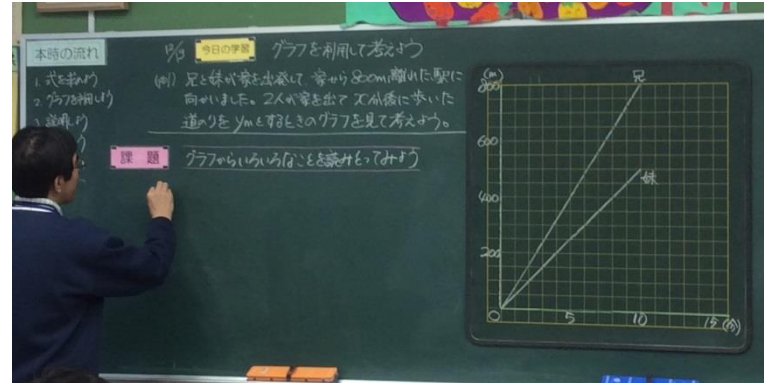 本時の流れ
1. 式を求めよう
2. グラフを利用しよう
3. 説明しよう
12/9 今日の学習 グラフを利用して考えよう
(例) 兄と妹が家を出発して家から800m離れた駅に
向かいました。2人が家を出てx分後に歩いた
道のりをymとするときのグラフを見て考えよう。
課題 グラフからいろいろなことを読みとってみよう
(m)
800
600
400
200
0
5
10
15 (分)
兄
妹